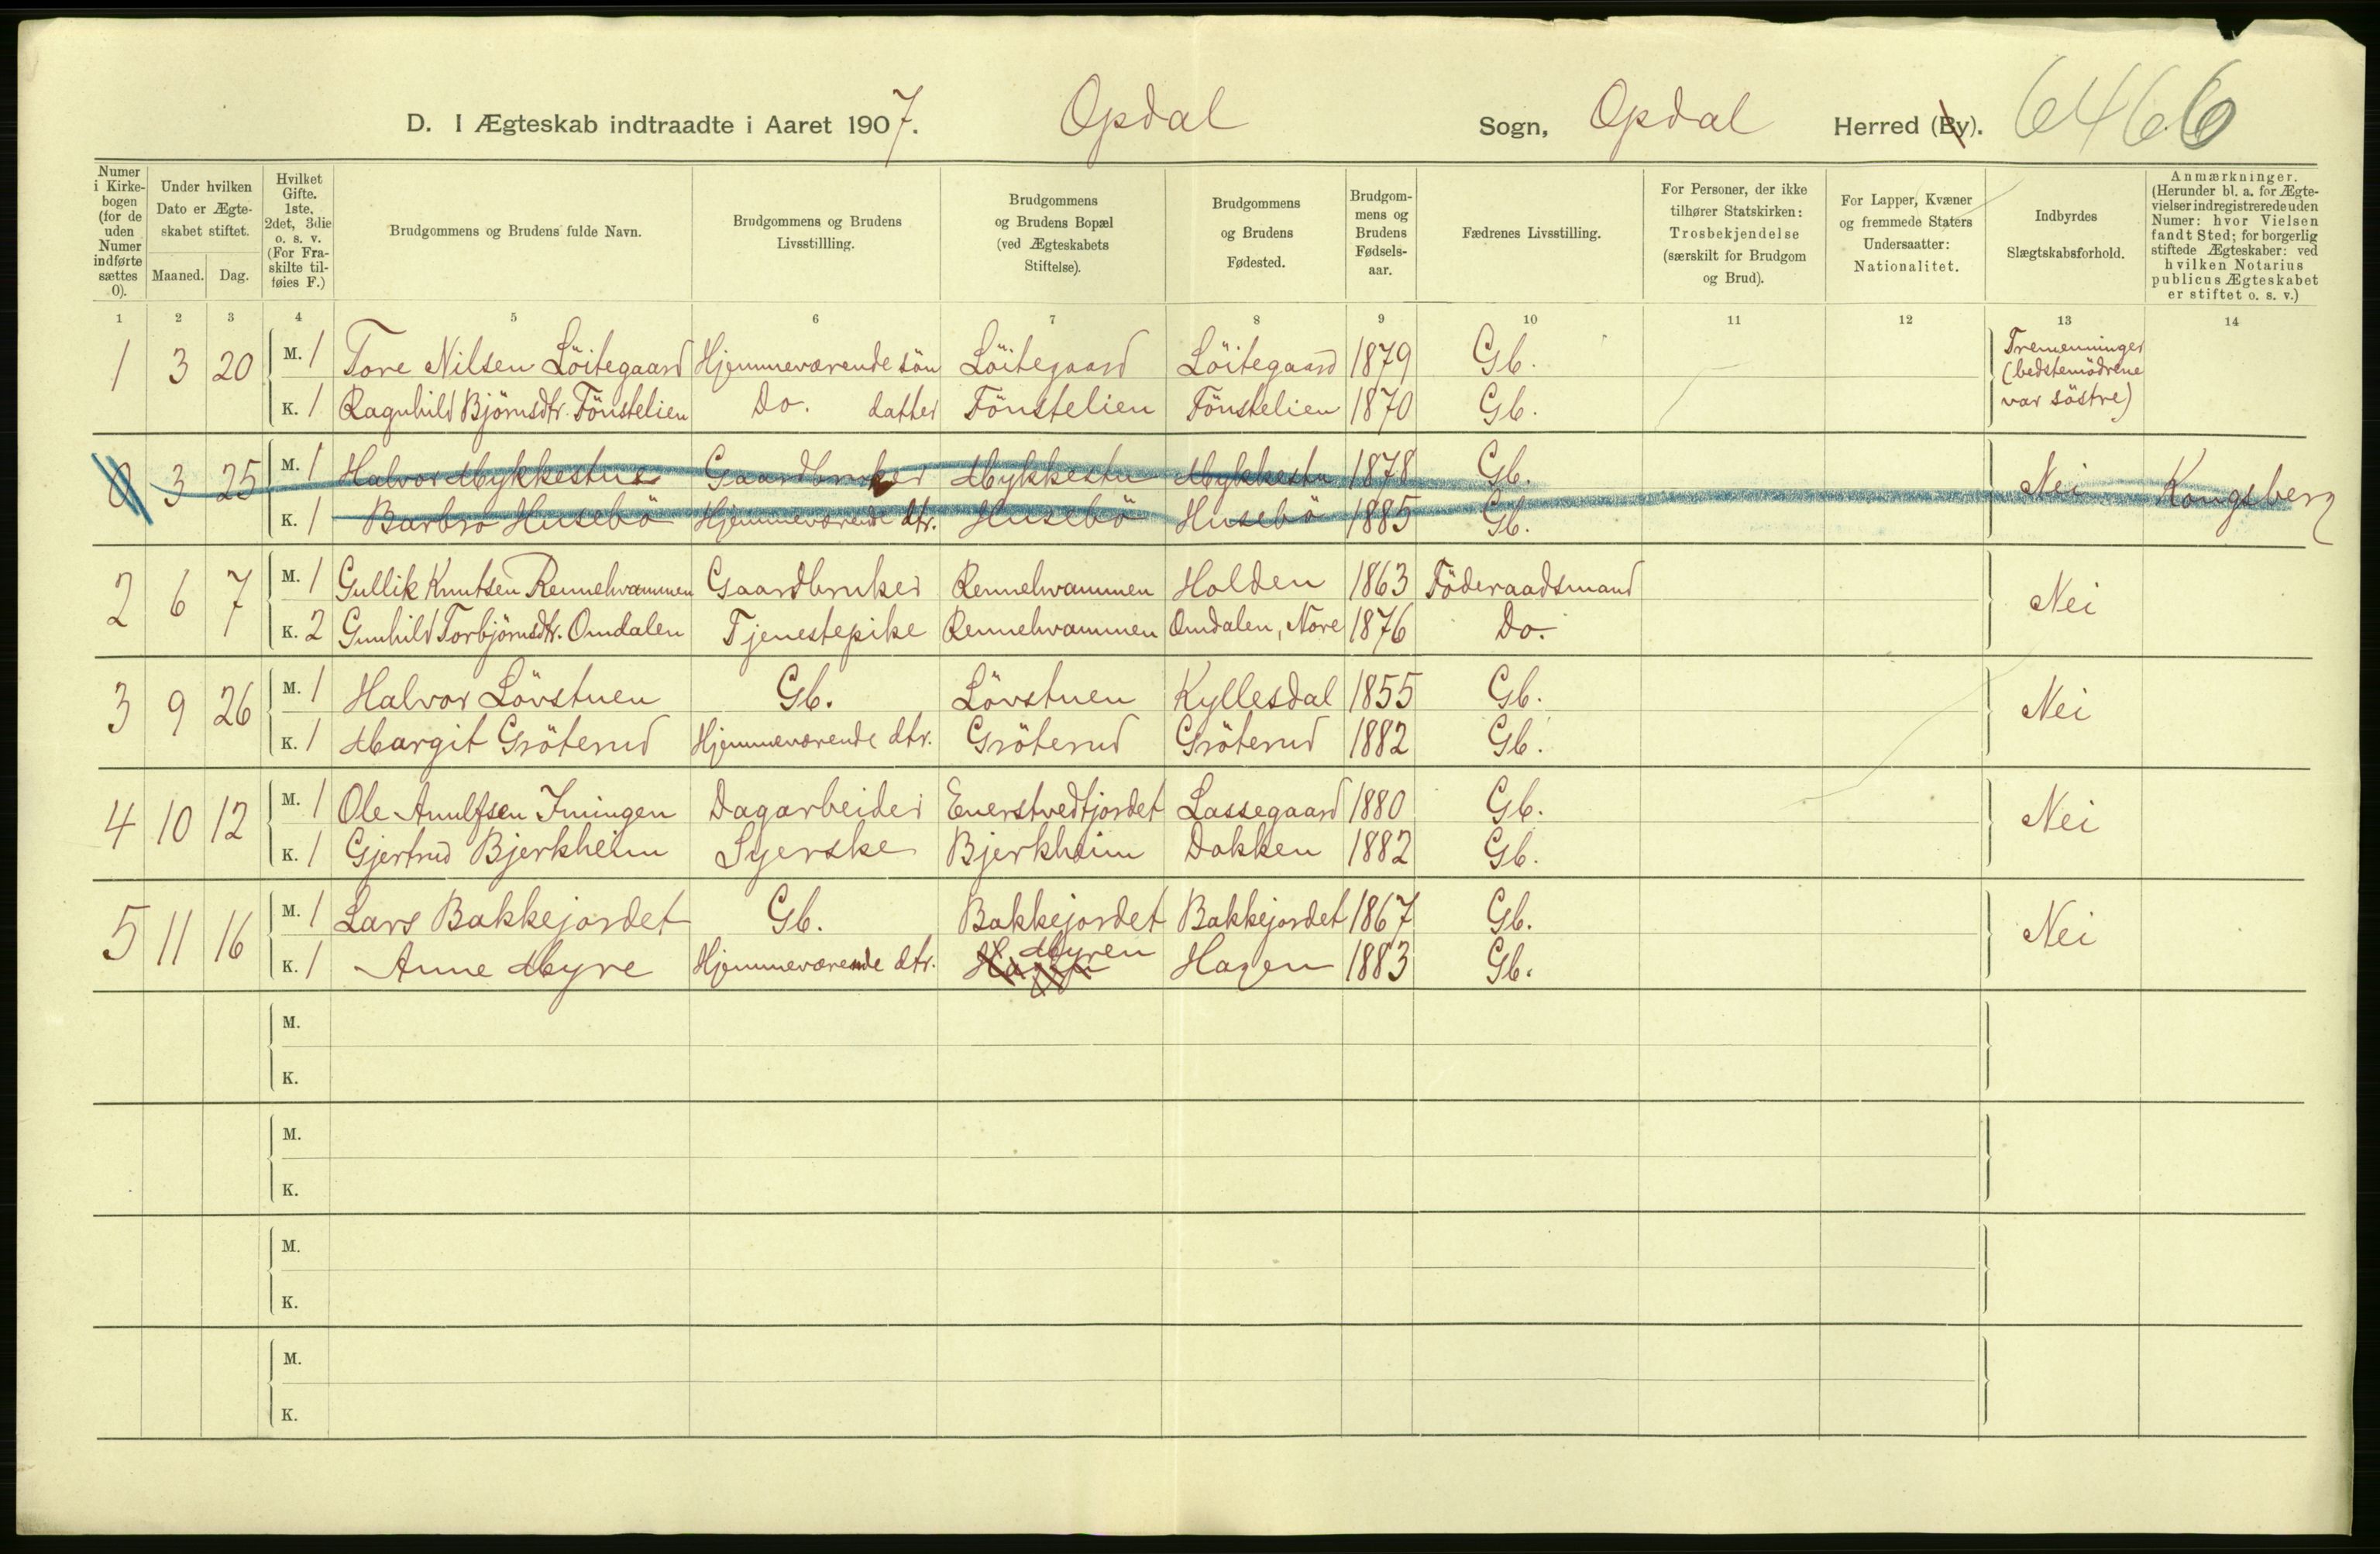 D. I Ægteskab indtraadte i Aaret 1907. Opdal Sogn, Opdal Herred (By). 6466
Numer i Kirkebogen (for de uden Numer indførte sættes 0).
Under hvilken Dato er Ægteskabet stiftet.
Maaned. Dag.
Hvilket Gifte. 1ste, 2det, 3die o. s. v. (For Fraskilte tilføies F.)
Brudgommens og Brudens fulde Navn.
Brudgommens og Brudens Livsstillling.
Brudgommens og Brudens Bopæl (ved Ægteskabets Stiftelse).
Brudgommens og Brudens Fødested.
Brudgommens og Brudens Fødselsaar.
Fædrenes Livsstilling.
For Personer, der ikke tilhører Statskirken: Trosbekjendelse (særskilt for Brudgom og Brud).
For Lapper, Kvæner og fremmede Staters Undersaatter: Nationalitet.
Indbyrdes Slægtskabsforhold.
Anmærkninger. (Herunder bl. a. for Ægtevielser indregistrerede uden Numer: hvor Vielsen fandt Sted; for borgerlig stiftede Ægteskaber: ved hvilken Notarius publicus Ægteskabet er stiftet o. s. v.)
1 2 3 4 5 6 7 8 9 10 11 12 13 14
1 3 20 M. 1 Tore Nilsen Löitegaard Hjemmeværende sön Löitegaard Löitegaard 1879 Gb. Tremenninger (bedstemödrene var söstre)
K. 1 Ragnhild Björnsdtr. Tönstelien Do. datter Tönstelien Tönstelien 1870 Gb.
0 3 25 M. 1 Halvor Mykkestue Gaardbruker Mykkestu Mykkestu 1878 Gb. Nei Kongsberg
K. 1 Barbro Husebö Hjemmeværende dtr. Husebö Husebö 1885 Gb.
2 6 7 M. 1 Gullik Knutsen Rennehvammen Gaardbruker Rennehvammen Holden 1863 Föderaadsmand Nei
K. 2 Gunhild Torbjörnsdtr. Omdalen Tjenestepike Rennehvammen Omdalen, Nore 1876 Do.
3 9 26 M. 1 Halvor Lövstuen Gb. Lövstuen Kyllesdal 1855 Gb. Nei
K. 1 Margit Gröterud Hjemmeværende dtr. Gröterud Gröterud 1882 Gb.
4 10 12 M. 1 Ole Anulfsen Imingen Dagarbeider Enerstvedtjordet Lassegaard 1880 Gb. Nei
K. 1 Gjertrud Bjerkheim Syerske Bjerkheim Dokken 1882 Gb.
5 11 16 M. 1 Lars Bakkejordet Gb. Bakkejordet Bakkejordet 1867 Gb. Nei
K. 1 Anne Myre Hjemmeværende dtr. Hagen Myren Hagen 1883 Gb.
M.
K.
M.
K.
M.
K.
M.
K.